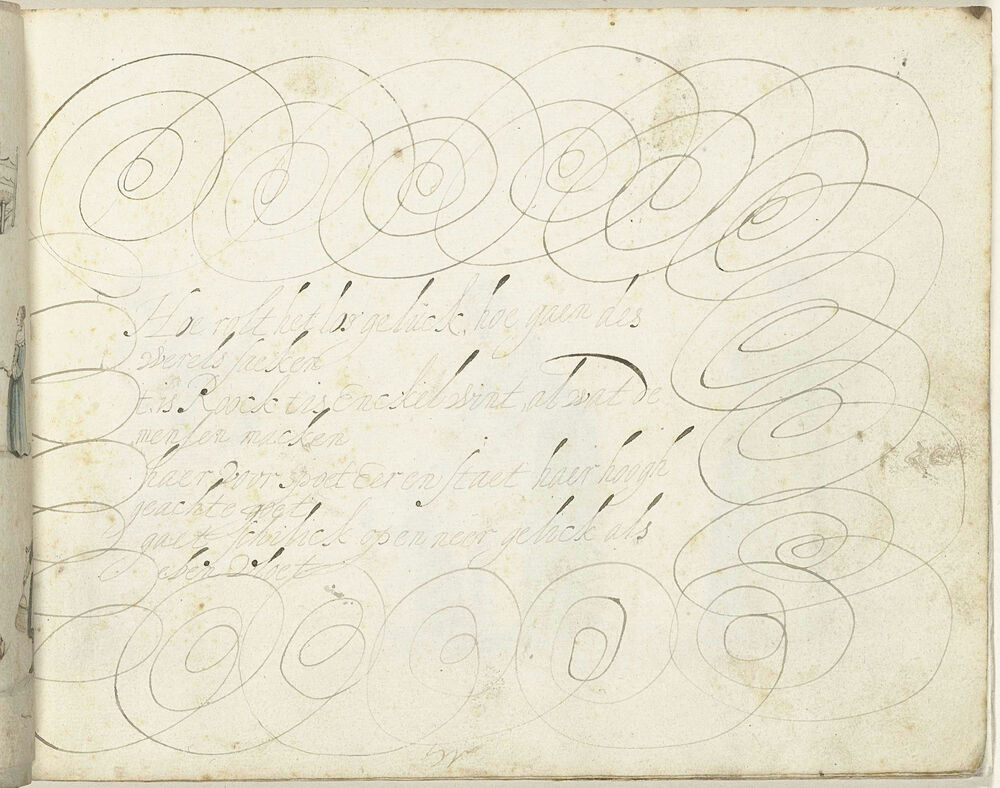 Hoe rolt het los geluck, hoe gaen des
werels saeken
tis Roock tis Enckel wint, al wat de
mensen macken
haer voor spoet Eer en staet haer hoogh
geachte
gaet schielick op en neer gelick als
eben